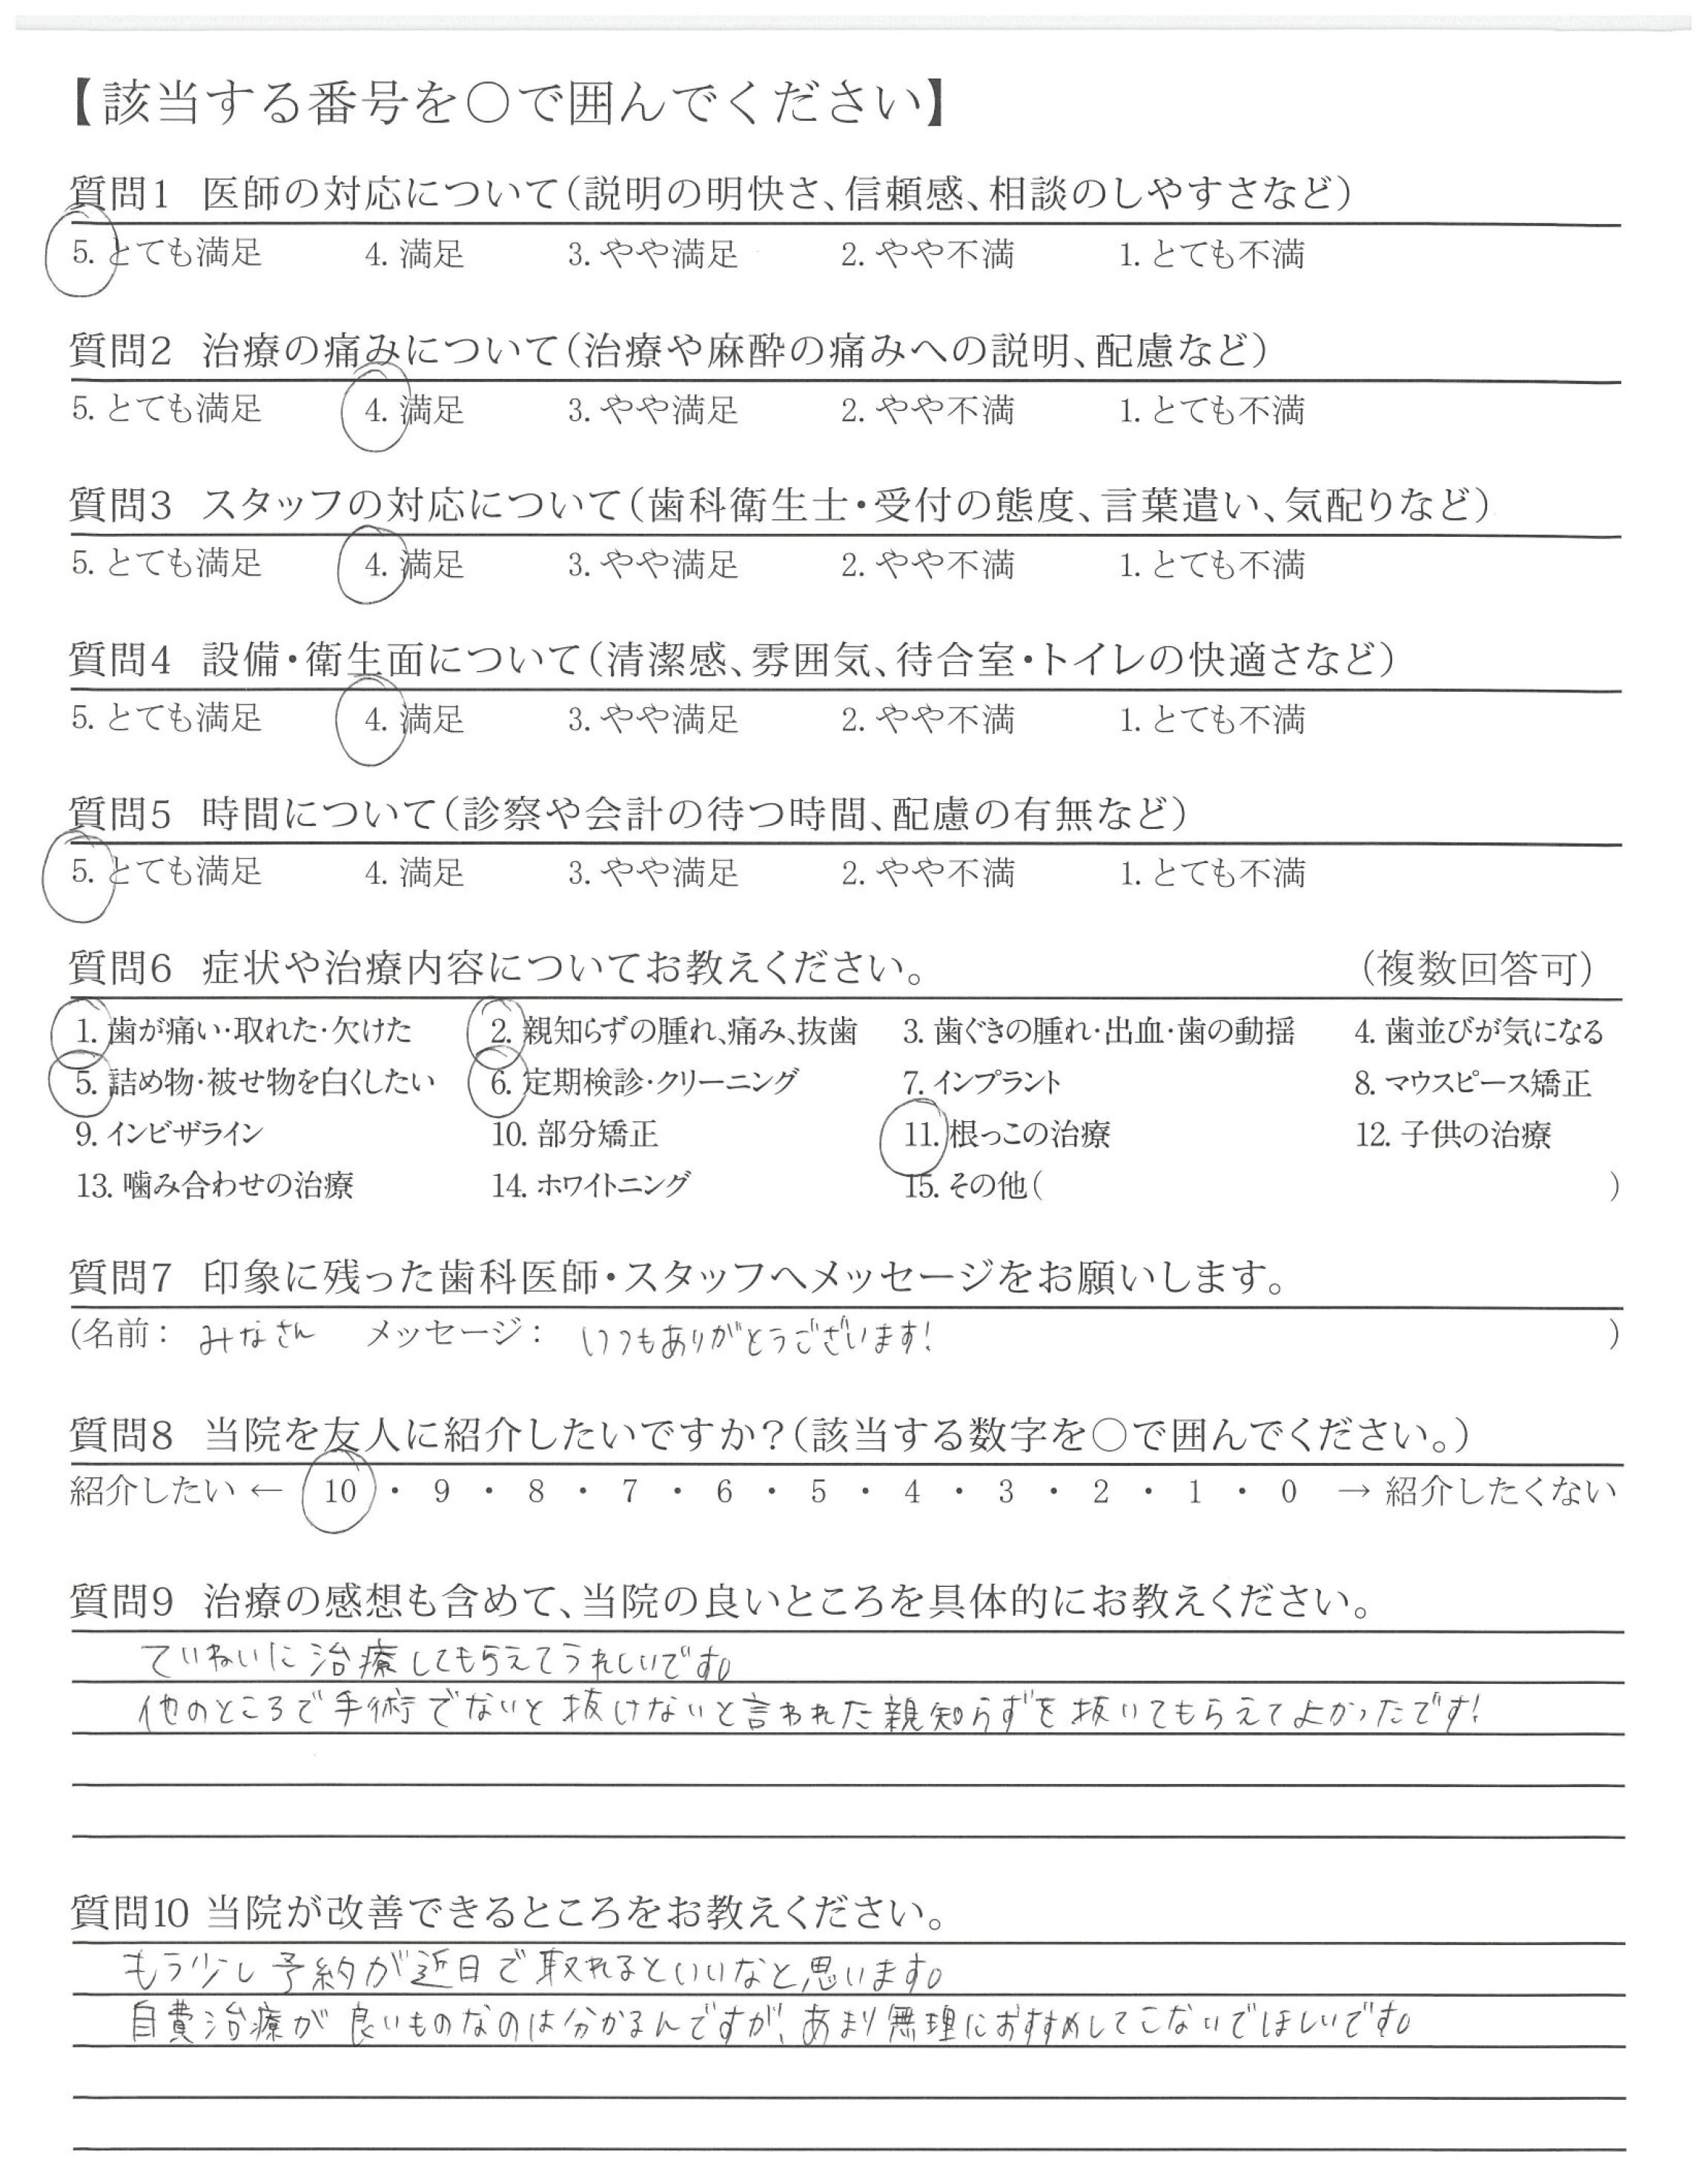 【該当する番号を〇で囲んでください】
質問1 医師の対応について(説明の明快さ、信頼感、相談のしやすさなど)
5. とても満足 4. 満足 3. やや満足 2. やや不満 1. とても不満
質問2 治療の痛みについて(治療や麻酔の痛みへの説明、配慮など)
5. とても満足 4. 満足 3. やや満足 2. やや不満 1. とても不満
質問3 スタッフの対応について(歯科衛生士・受付の態度、言葉遣い、気配りなど)
5. とても満足 4. 満足 3. やや満足 2. やや不満 1. とても不満
質問4 設備・衛生面について(清潔感、雰囲気、待合室・トイレの快適さなど)
5. とても満足 4. 満足 3. やや満足 2. やや不満 1. とても不満
質問5 時間について(診察や会計の待つ時間、配慮の有無など)
5. とても満足 4. 満足 3. やや満足 2. やや不満 1. とても不満
質問6 症状や治療内容についてお教えください。 (複数回答可)
1. 歯が痛い・取れた・欠けた 2. 親知らずの腫れ、痛み、抜歯 3. 歯ぐきの腫れ・出血・歯の動揺 4. 歯並びが気になる
5. 詰め物・被せ物を白くしたい 6. 定期検診・クリーニング 7. インプラント 8. マウスピース矯正
9. インビザライン 10. 部分矯正 11. 根っこの治療 12. 子供の治療
13. 噛み合わせの治療 14. ホワイトニング 15. その他( )
質問7 印象に残った歯科医師・スタッフへメッセージをお願いします。
(名前: みなさん メッセージ: いつもありがとうございます! )
質問8 当院を友人に紹介したいですか?(該当する数字を〇で囲んでください。)
紹介したい ← 10 ・ 9 ・ 8 ・ 7 ・ 6 ・ 5 ・ 4 ・ 3 ・ 2 ・ 1 ・ 0 → 紹介したくない
質問9 治療の感想も含めて、当院の良いところを具体的にお教えください。
ていねいに治療してもらえてうれしいです。
他のところで手術でないと抜けないと言われた親知らずを抜いてもらえてよかったです!
質問10 当院が改善できるところをお教えください。
もう少し予約が近日で取れるといいなと思います。
自費治療が良いものなのは分かるんですが、あまり無理におすすめしてこないでほしいです。